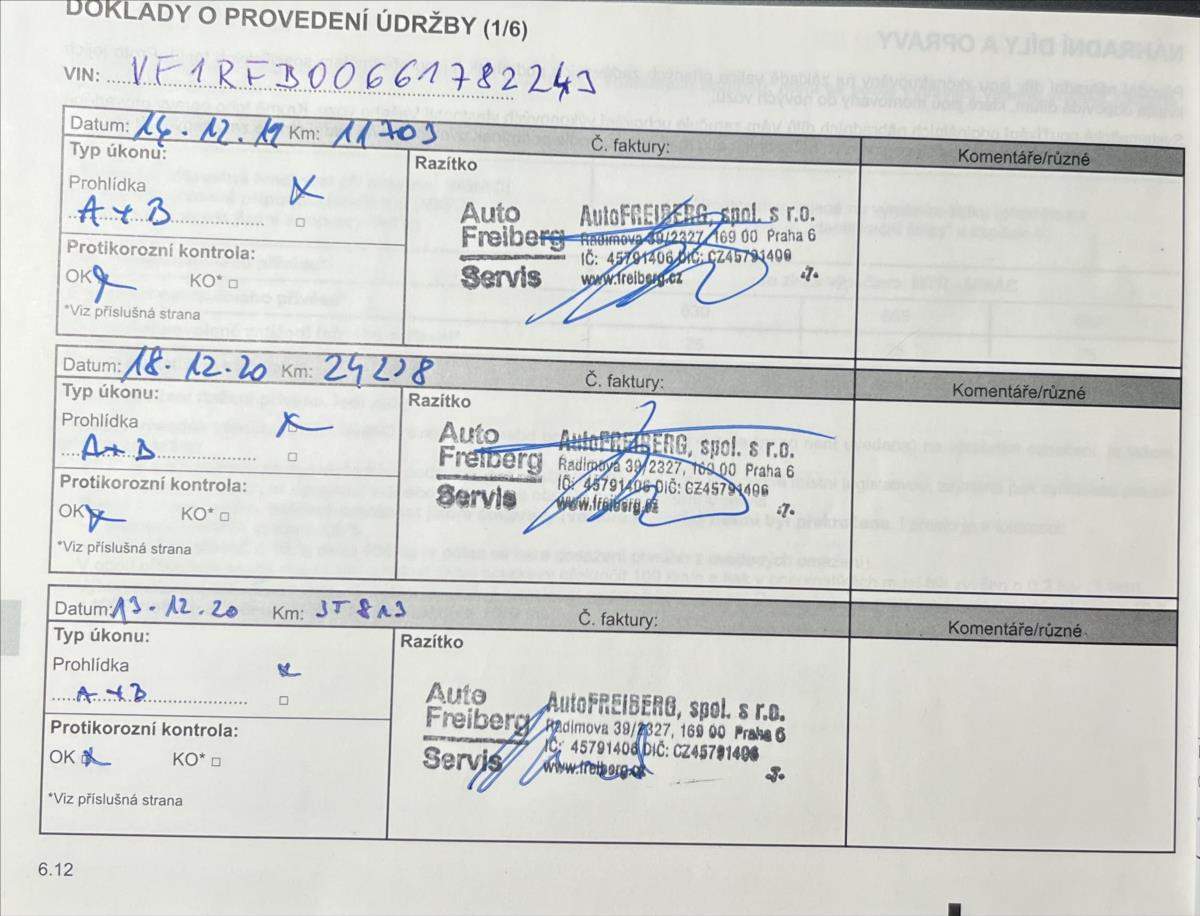 DOKLADY O PROVEDENÍ ÚDRŽBY (1/6)
VIN: VF1RFB00661782243
Datum: 14.12.19 Km: 11703 Č. faktury: Komentáře/různé
Typ úkonu:
Razítko
Prohlídka
A+B
Protikorozní kontrola:
OK KO*
*Viz příslušná strana
Auto
Freiberg
Servis
AutoFREIBERG, spol. s r.o.
Radimova 39/2327, 169 00 Praha 6
IČ: 45791406 DIČ: CZ45791406
www.freiberg.cz
-7-
Datum: 18.12.20 Km: Č. faktury: Komentáře/různé
Typ úkonu:
Razítko
Prohlídka
A+B
Protikorozní kontrola:
OK KO*
*Viz příslušná strana
Auto
Freiberg
Servis
AutoFREIBERG, spol. s r.o.
Radimova 39/2327, 169 00 Praha 6
IČ: 45791406 DIČ: CZ45791406
www.freiberg.cz
-7-
Datum: 13.12.20 Km: Č. faktury: Komentáře/různé
Typ úkonu:
Razítko
Prohlídka
A+B
Protikorozní kontrola:
OK KO*
*Viz příslušná strana
Auto
Freiberg
Servis
AutoFREIBERG, spol. s r.o.
Radimova 39/2327, 169 00 Praha 6
IČ: 45791406 DIČ: CZ45791406
www.freiberg.cz
6.12